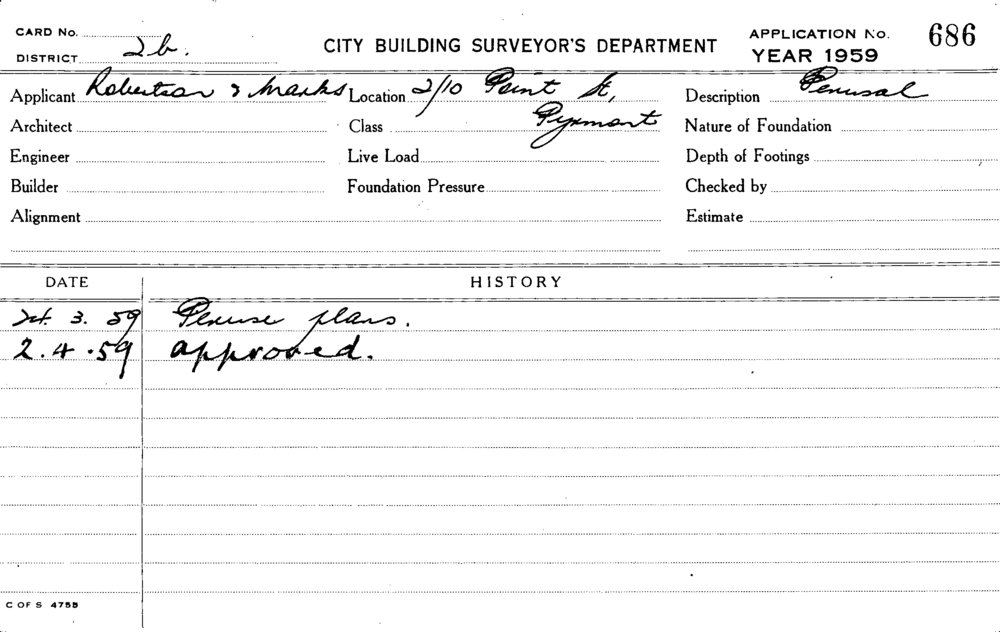 CARD No.
DISTRICT 2b.
CITY BUILDING SURVEYOR'S DEPARTMENT
APPLICATION No. 686
YEAR 1959
Applicant Robertson & Marks Location 2/10 Point St, Description Perusal
Architect Class Pyrmont Nature of Foundation
Engineer Live Load Depth of Footings
Builder Foundation Pressure Checked by
Alignment Estimate
DATE HISTORY
24. 3. 59 Peruse plans.
2.4.59 approved.
C OF S 475B